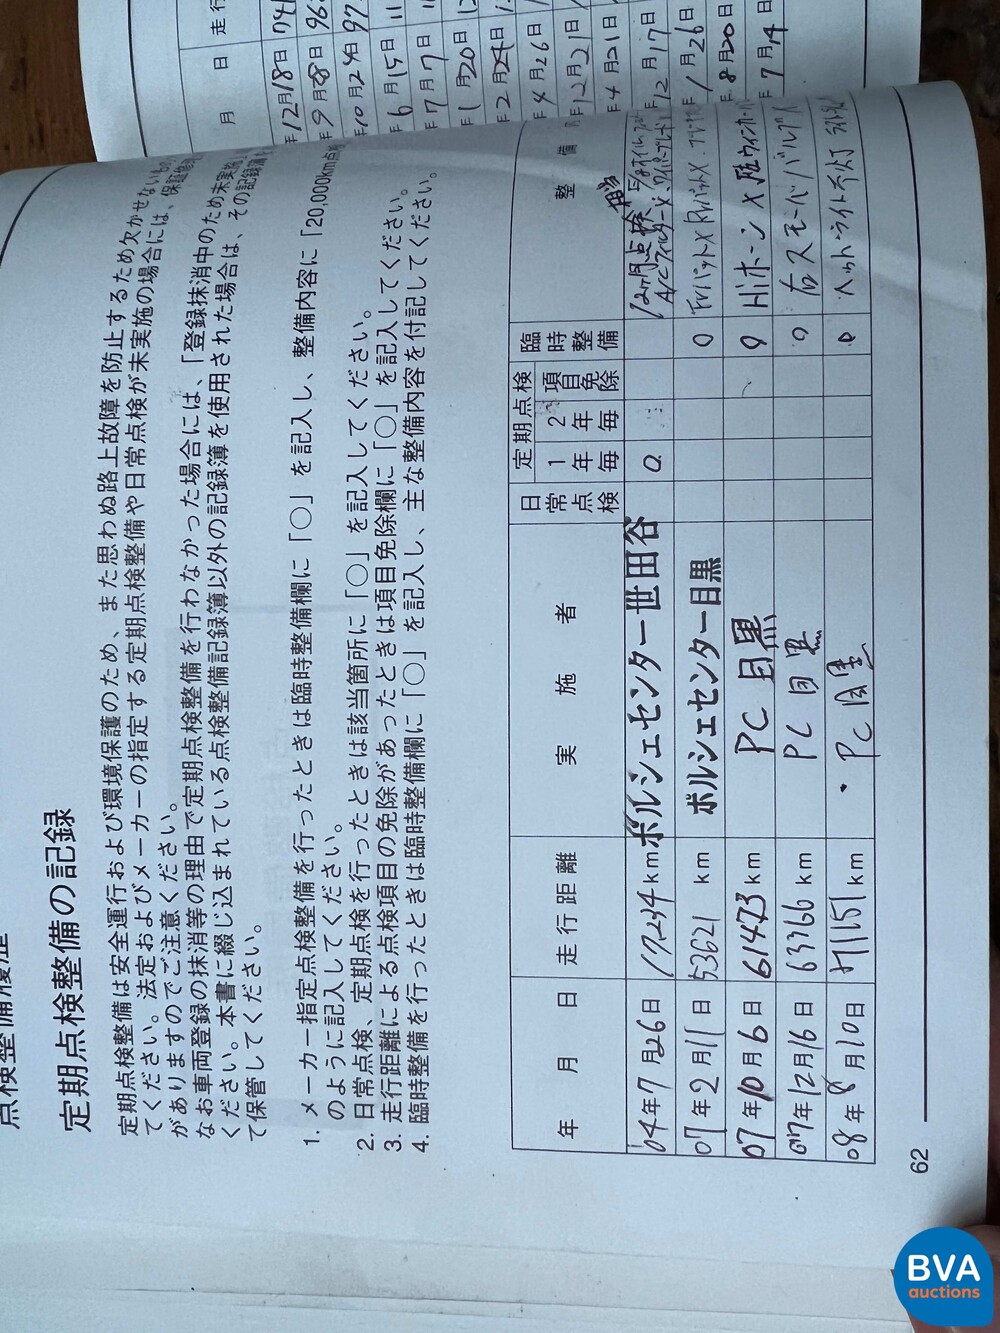 定期点検整備の記録
定期点検整備は安全運行および環境保護のため、また思わぬ路上故障を防止するため欠かせないもの
てください。法定およびメーカーの指定する定期点検整備や日常点検が未実施の場合には、保証修理
がありますのでご注意ください。
なお車両登録の抹消等の理由で定期点検整備を行わなかった場合には、「登録抹消中のため未実施
ください。本書に綴じ込まれている点検整備記録簿以外の記録簿を使用された場合は、その記録簿
て保管してください。
1. メーカー指定点検整備を行ったときは臨時整備欄に「○」を記入し、整備内容に「20,000km点検
のように記入してください。
2. 日常点検、定期点検を行ったときは該当箇所に「○」を記入してください。
3. 走行距離による点検項目の免除があったときは項目免除欄に「○」を記入してください。
4. 臨時整備を行ったときは臨時整備欄に「○」を記入し、主な整備内容を付記してください。
年 月 日 走行距離 実施者 日常点検 定期点検 1年毎 2年毎 項目免除 臨時整備 整備
04年7月26日 17234km ポルシェセンター世田谷 ○ 12ヶ月点検
07年2月11日 53621km ポルシェセンター目黒 ○
07年10月6日 61473km PC 目黒 ○ Hiホーン×
07年12月16日 63366km PC 目黒 ○ 右スモールバルブ
08年8月10日 71151km PC 目黒 ○ ヘッドライト不灯
62
月 日 走行
12月18日
9月8日
10月24日
6月15日
7月7日
1月20日
2月24日
4月26日
12月21日
4月21日
12月17日
1月26日
8月20日
7月14日
BVA
auctions